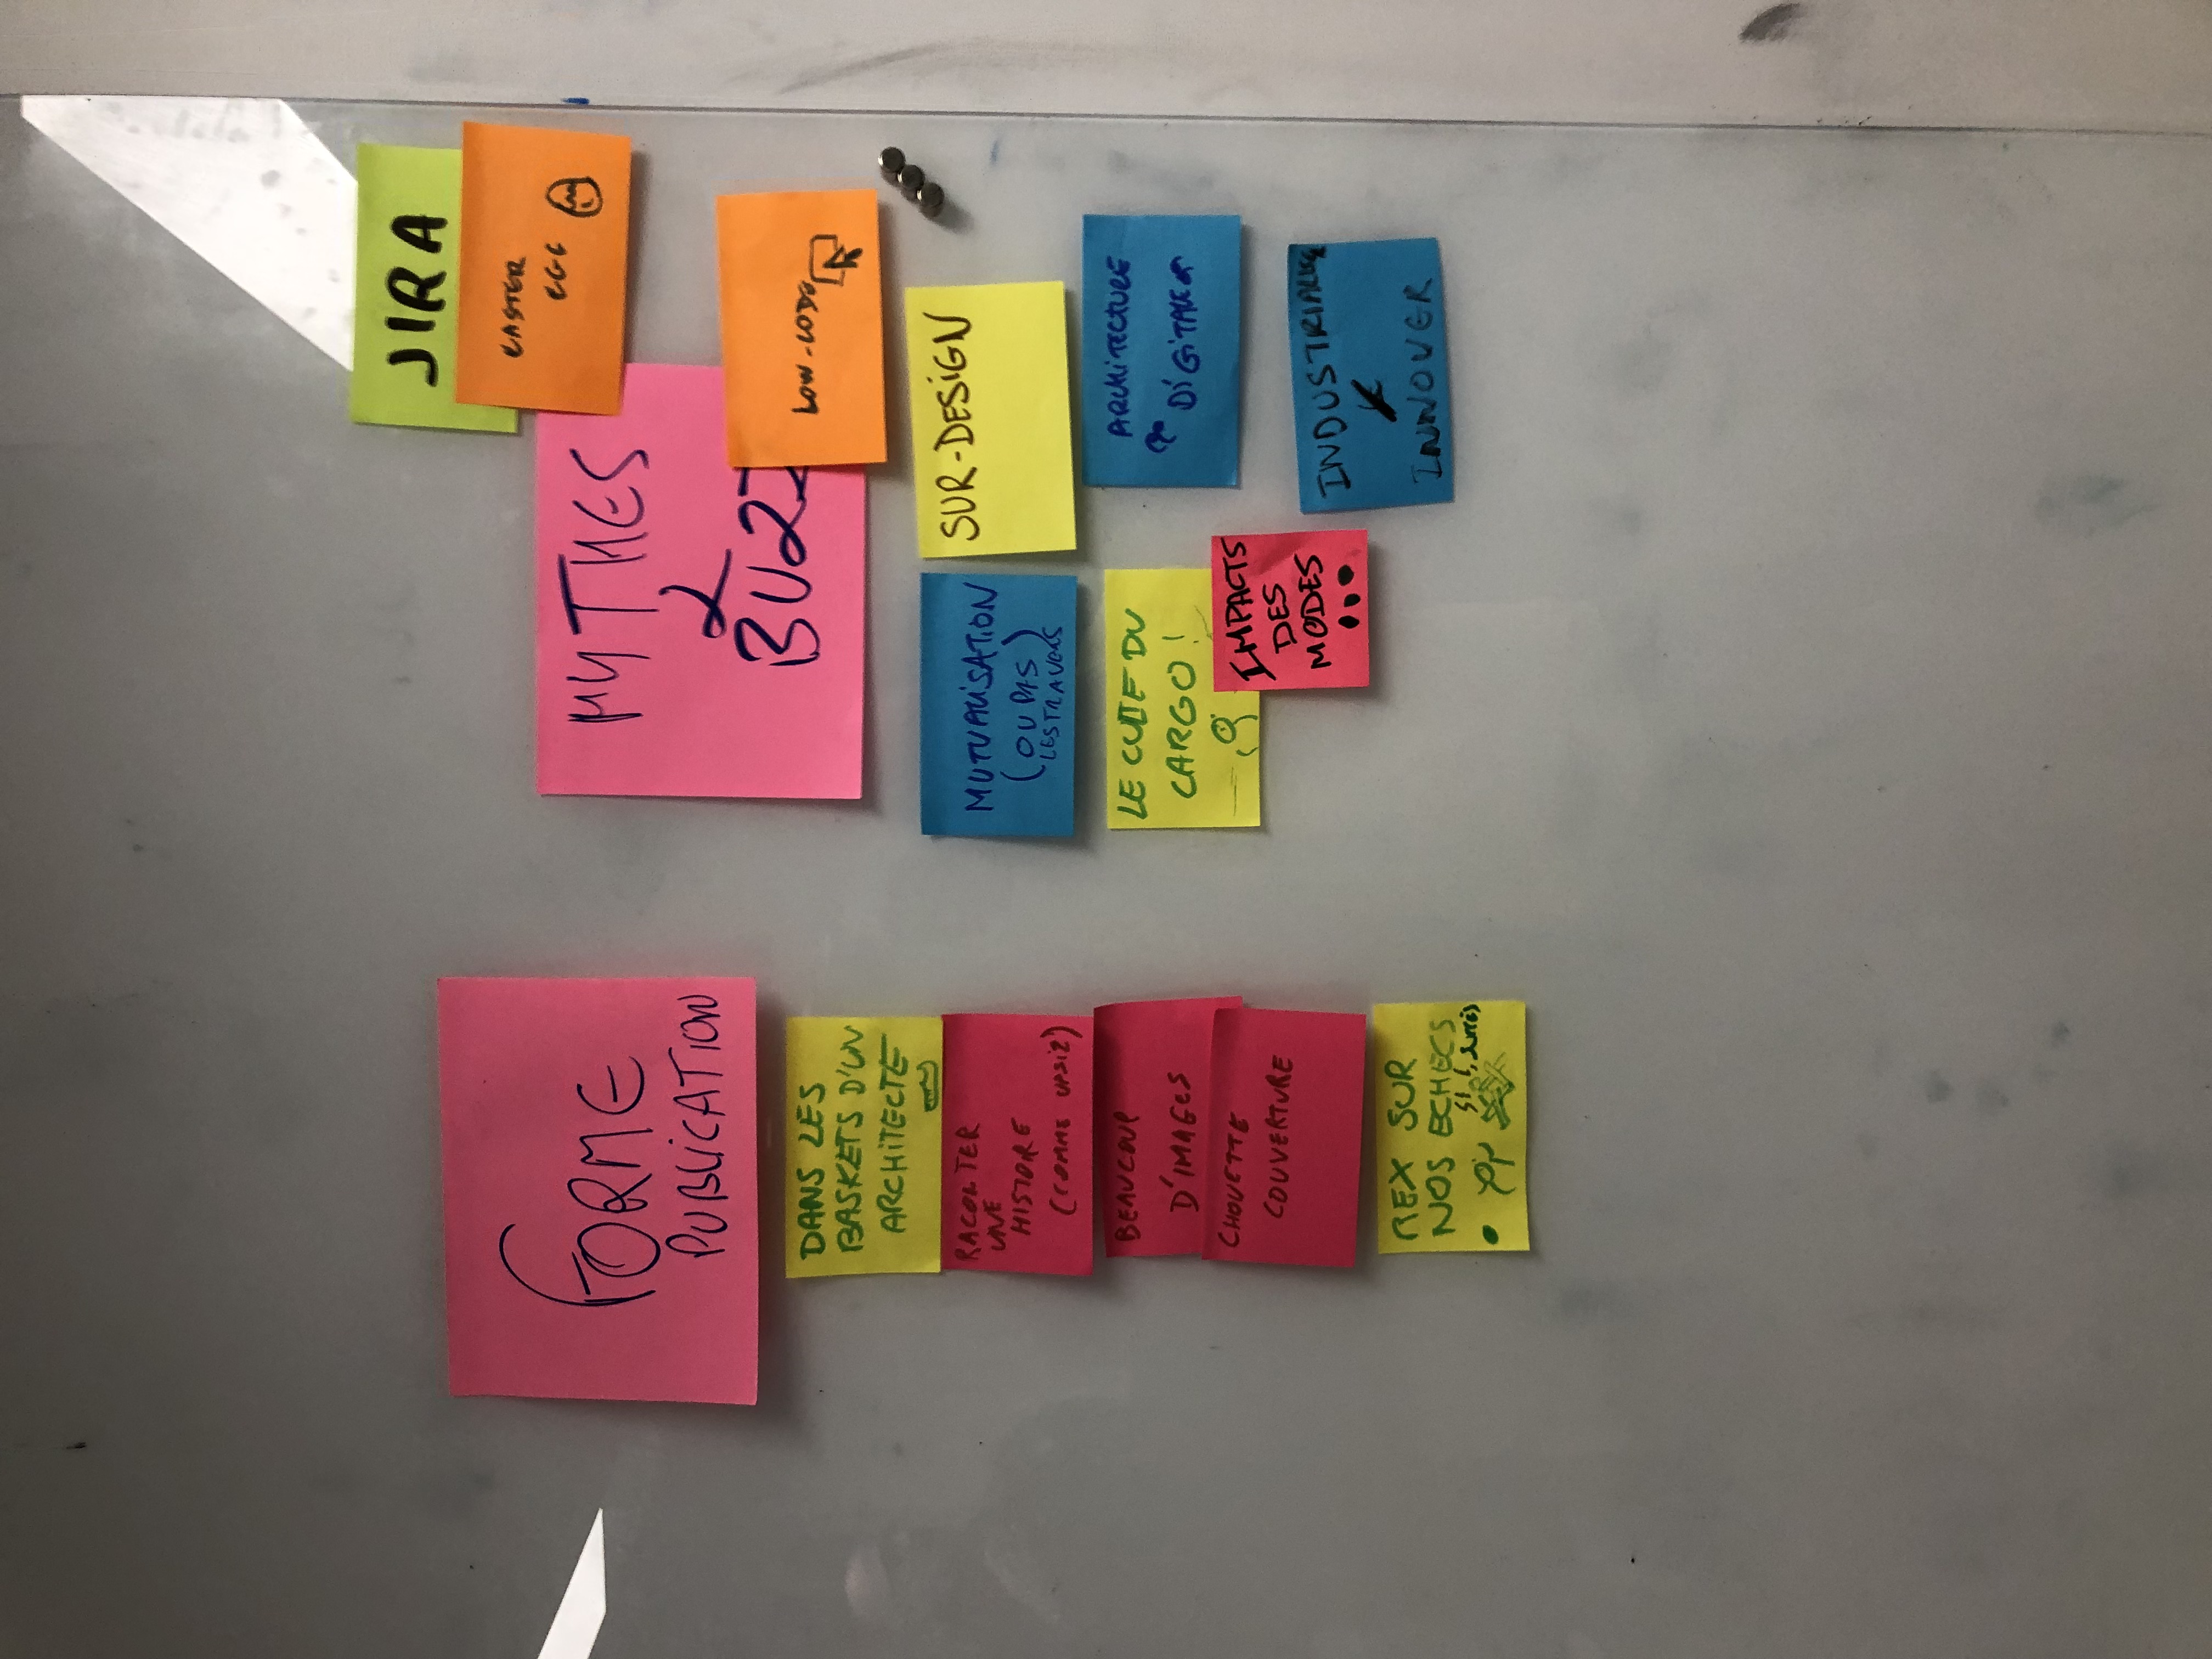 FORME
PUBLICATION
DANS LES
BASKETS D'UN
ARCHITECTE
RACONTER
UNE
HISTOIRE
(COMME UPSIZ)
BEAUCOUP
D'IMAGES
CHOUETTE
COUVERTURE
REX SUR
NOS ECHECS
JIRA
EASTER
EGG
MYTHES
&
BUZZ
LOW-CODE
MUTUALISATION
(OU PAS)
LES TRAVERS
SUR-DESIGN
LE CULTE DU
CARGO !
IMPACTS
DES
MODES
...
ARCHITECTURE
DIGITALE
INDUSTRIALISER
INNOVER